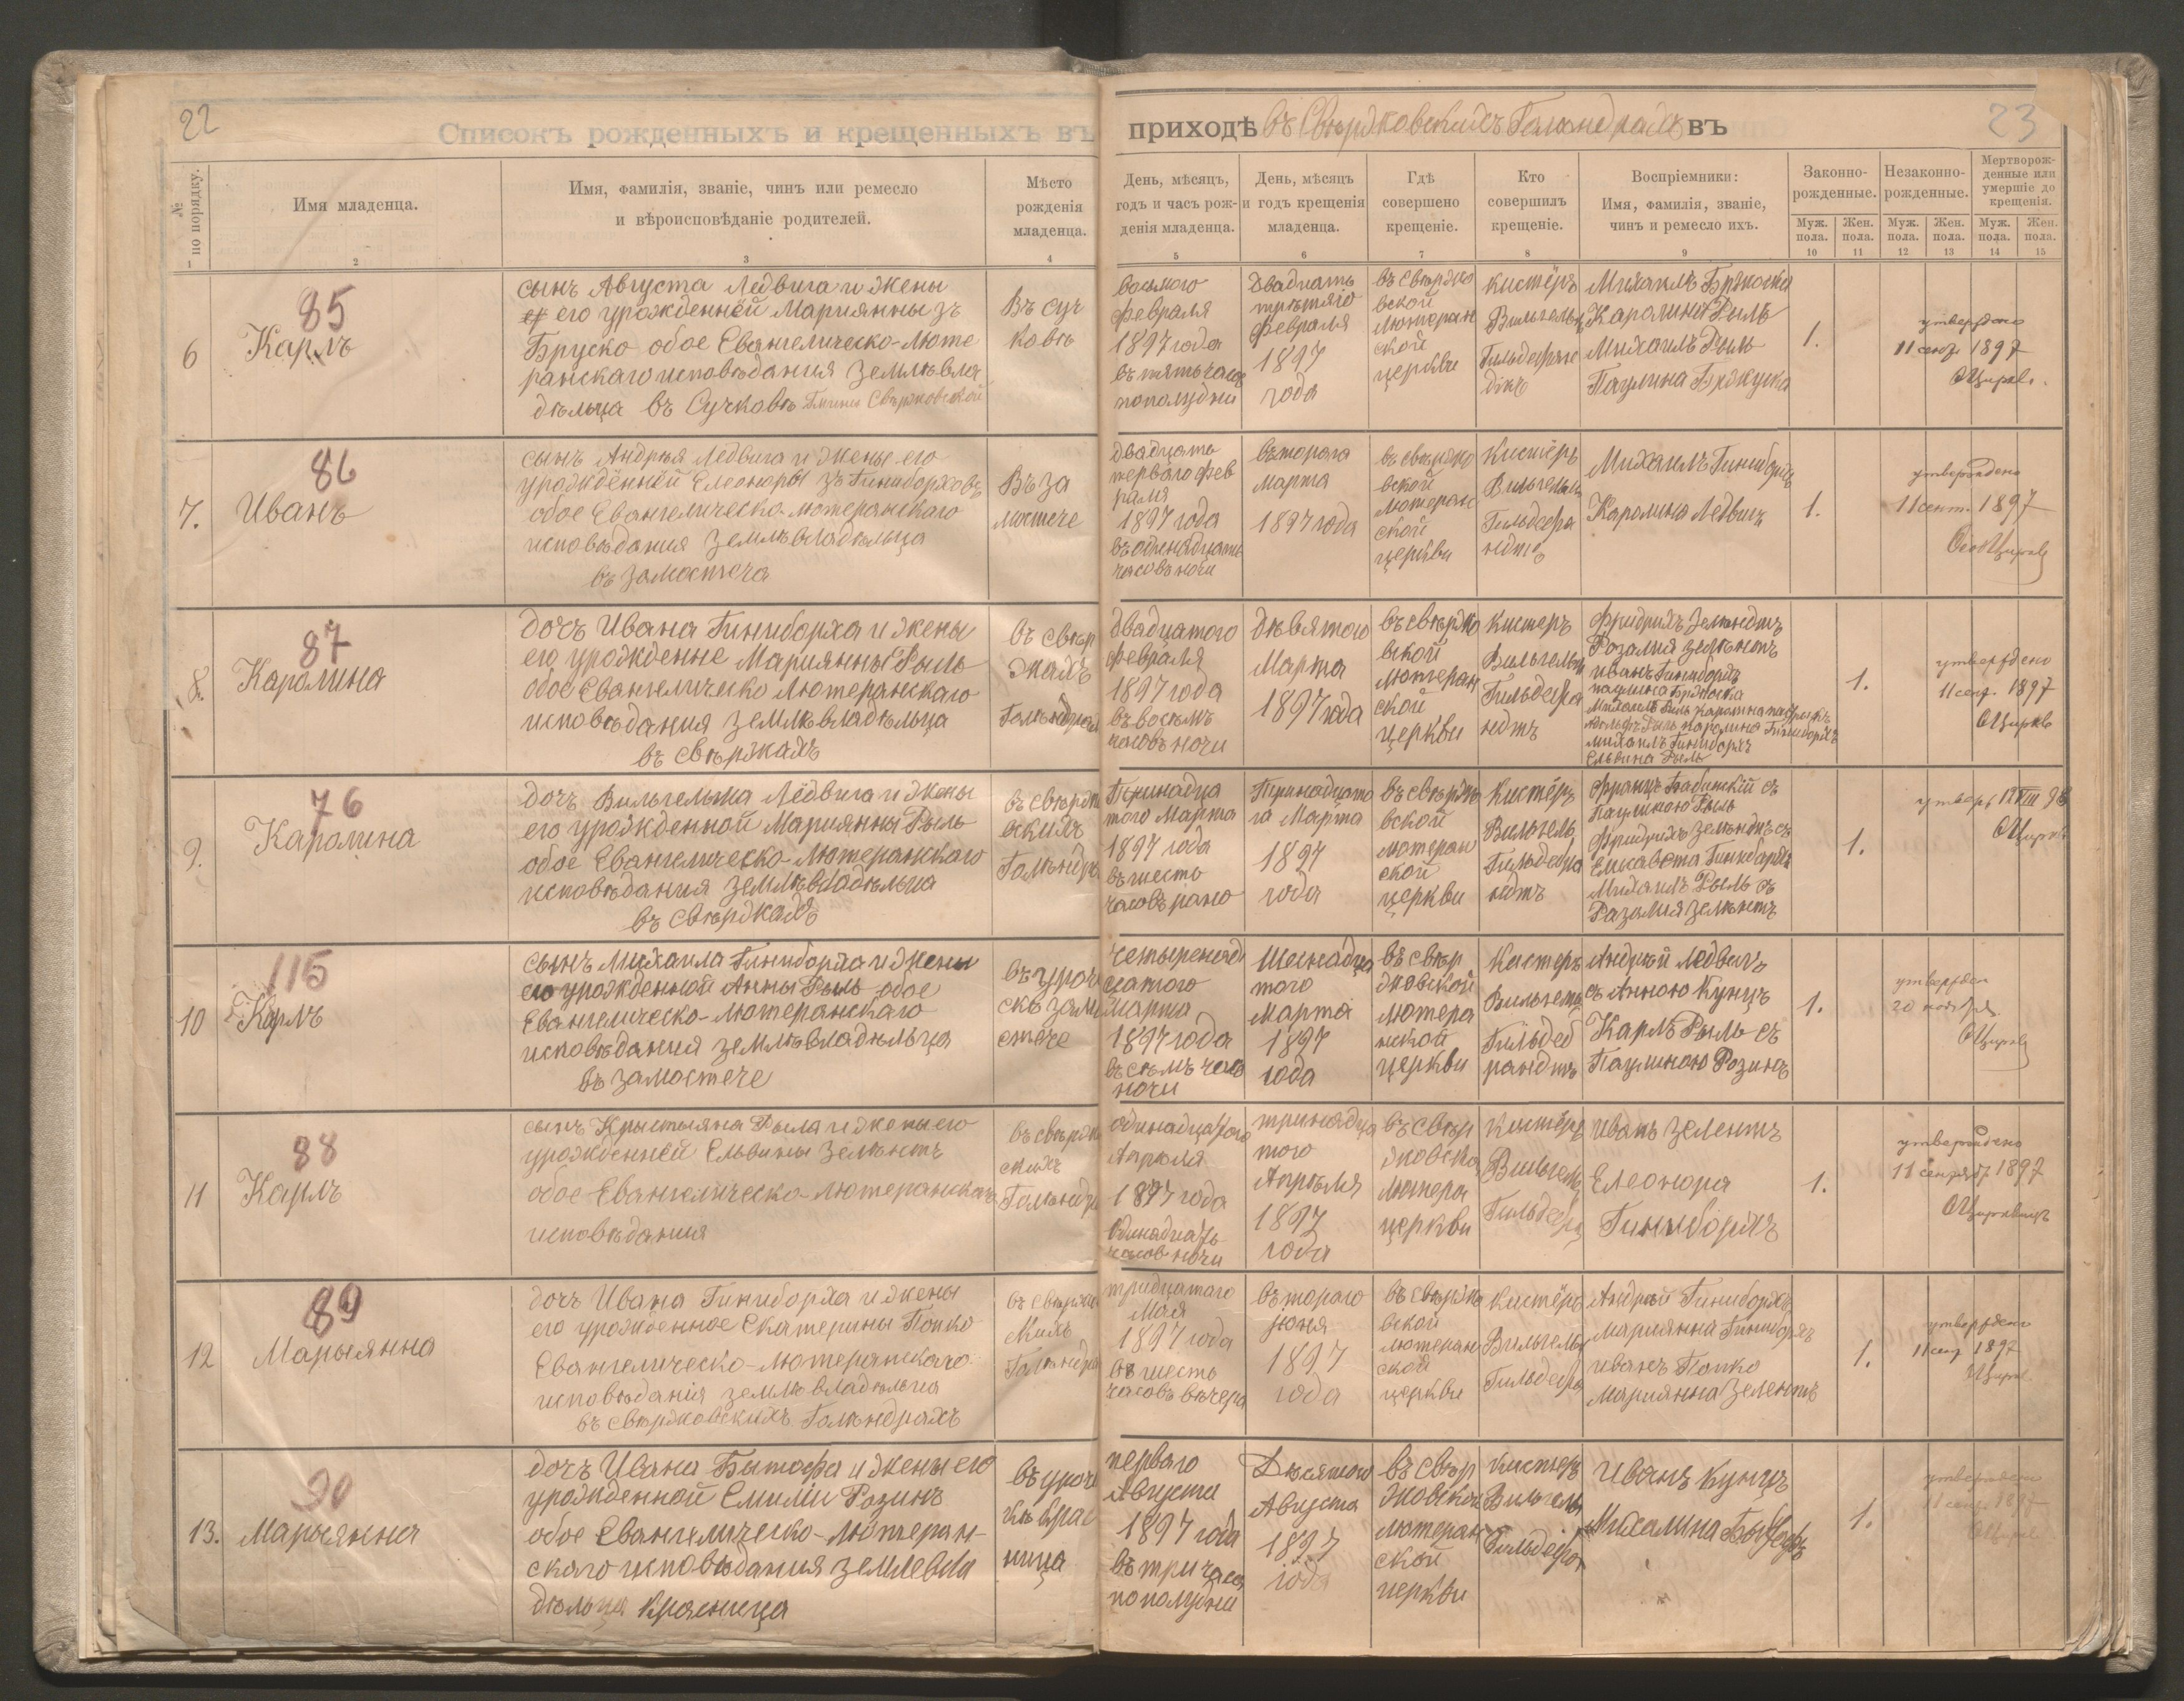 22
23
Списокъ рожденныхъ и крещенныхъ въ приходѣ въ Свѣржовскихъ Голендрахъ въ
№ по порядку.
Имя младенца.
Имя, фамилія, званіе, чинъ или ремесло
и вѣроисповѣданіе родителей.
Мѣсто
рожденія
младенца.
День, мѣсяцъ,
годъ и часъ рож-
денія младенца.
День, мѣсяцъ
и годъ крещенія
младенца.
Гдѣ
совершено
крещеніе.
Кто
совершилъ
крещеніе.
Воспріемники:
Имя, фамилія, званіе,
чинъ и ремесло ихъ.
Законно-
рожденные.
Незаконно-
рожденные.
Мертворож-
денные или
умершіе до
крещенія.
Муж.
пола.
Жен.
пола.
Муж.
пола.
Жен.
пола.
Муж.
пола.
Жен.
пола.
1 2 3 4 5 6 7 8 9 10 11 12 13 14 15
6
85
Карлъ
сынъ Августа Ледвига и жены
его урожденней Мариянны зъ
Бруско обое Евангелическо-Люте
ранскаго исповѣдания землѣвла
дѣльца въ Сучковѣ
Въ суч
ковѣ
восьмого
февраля
1897 года
въ пять часа
пополудни
двадцать
третяго
февраля
1897
года
въ свѣржо
вской
Лютеран
ской
церкви
кистёръ
Вильгельм
Гильдебран
дтъ
Михаилъ
Каролина Рыль
Михаилъ Рыль
Паулина
1.
утверждено
11 сент. 1897
7.
86
Иванъ
сынъ Андрея Ледвига и жены его
урождённей Елеоноры зъ Гиниборховъ
обое Евангелическо-лютеранскаго
исповѣдания землѣвладѣльца
въ замостеча
Въ за
мостече
двадцать
перваго фев
раля
1897 года
въ одинадцать
часовъ ночи
въторого
марта
1897 года
въ свѣржо
вской
лютеран
ской
церкви
Кистёръ
Вильгельм
Гильдебра
ндтъ
Михаилъ Гиниборхъ
Каролина Ледвигъ
1.
утверждено
11 сент. 1897
8.
87
Каролина
дочъ Ивана Гиниборха и жены
его урожденне Марияннны Рыль
обое Евангелическо Лютеранскаго
исповѣдания землѣвладѣльца
въ свѣржахъ
въ свѣр
жахъ
двадцатого
февраля
1897 года
въ восемъ
часовъ ночи
дѣвятого
Марта
1897 года
въ свѣржо
вской
лютеран
ской
церкви
Кистеръ
Вильгельм
Гильдебра
ндтъ
Фридрихъ
Розалия
иванъ Гиниборхъ
паулина
Михаилъ Гиниборхъ
Ельвина Рыль
1.
утверждено
11 сент. 1897
9.
76
Каролина
дочъ Вильгельма Лёдвига и жены
его урожденной Марияннны Рыль
обое Евангелическо-Лютеранскаго
исповѣдания землѣвладѣльца
въ свѣржахъ
въ свѣржо
вскихъ
Голѣндр
Тринадца
того Марта
1897 года
въ шесть
часовъ рано
Тринадцато
го Марта
1897
года
въ свѣржо
вской
лютеран
ской
церкви
Кистёръ
Вильгель
Гильдебра
ндтъ
Францъ Бабинскій съ
Паулиною Рыль
Фридрихъ
Елисавета Гиниборхъ
Михаилъ Рыль съ
Розалия
1.
10
115
Карлъ
сынъ Михаила Гиниборха и жены
его урожденной Анны Рыль обое
Евангелическо-Лютеранскаго
исповѣдания землѣвладѣльца
въ замостече
въ уроч
скѣ замо
стече
четыренад
цатого
Марта
1897 года
въ семъ час
ночи
Шеснадца
того
Марта
1897
года
въ свѣр
жовской
лютера
нской
церкви
Кистеръ
Вильгель
Гильдеб
рандтъ
Андрей Ледвигъ
съ Анною Кунцъ
Карлъ Рыль съ
Паулиною Розинъ
1.
утвержден
20 ноября
11
88
Карлъ
сынъ Крыстыяна Рыля и жены его
урожденней Ельвины Зелѣнтъ
обое Евангелическо-лютеранскаго
исповѣдания
въ свѣржо
скихъ
Голѣндр
одинадцатого
Апрѣля
1897 года
одинадцать
часов ночи
тринадца
того
Апрѣля
1897
года
въ свѣр
жовско
лютера
церкви
Кистёръ
Вильгель
Гильдебра
Иванъ Зелентъ
Елеонора
Гиниборхъ
1.
утверждено
11 сентября 1897
12
89
Марыянна
дочъ Ивана Гиниборха и жены
его урожденное Екатерины Попко
Евангелическо-лютеранскаго
исповѣданія землѣвладѣльца
въ свѣржовскихъ Голѣндрахъ
тридцатого
Мая
1897 года
въ шесть
часовъ вечера
въторого
іюня
1897
года
въ свѣржо
вской
лютеран
ской
церкви
Кистёръ
Вильгельм
Гильдебра
Андрей Гиниборхъ
Мариянна Гиниборхъ
иванъ Попко
Мариянна Зелентъ
1.
утверждено
11 сент 1897
13.
90
Марыянна
дочъ Ивана Бытофа и жены его
урожденной Емиліи Розинъ
обое Евангелическо-Лютеран-
скаго исповѣдания землевла
дѣльца Красница
въ уроч
кѣ крас
ница
перваго
Августа
1897 года
въ три часа
пополудни
Десятого
Августа
1897
года
въ свѣр
жовской
лютеран
ской
церкви
Кистеръ
Вильгель
Гильдебра
Иванъ Кунцъ
Михалина
1.
утверждено
11 сент. 1897